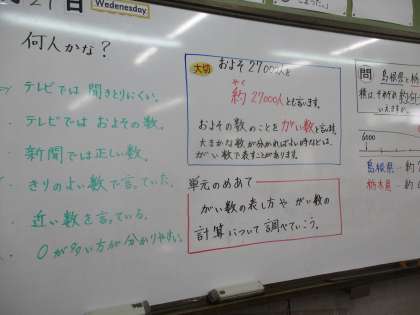 27日
Wednesday
何人かな？
テレビでは聞きとりにくい。
テレビではおよその数。
新聞では正しい数。
きりのよい数で言っていた。
近い数を言っている。
0が多い方が分かりやすい。
大切 およそ27000人を
やく
約27000人とも言います。
およその数のことをがい数と言います。
大きな数が分かればよい時などは、
がい数で表すことがあります。
単元のめあて
がい数の表し方やがい数の
計算について調べていこう。
問 島根県と栃
6000
島根県－約
栃木県－約